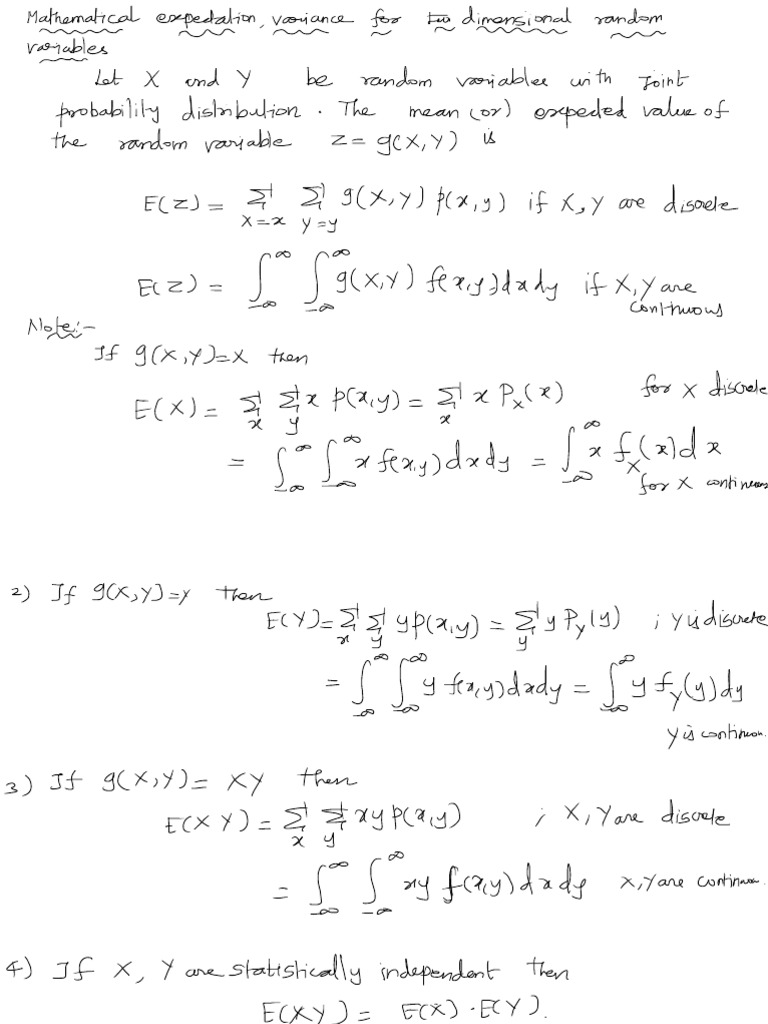 Mathematical expectation, variance for two dimensional random
variables
Let X and Y be random variables with Joint
probability distribution. The mean (or) expected value of
the random variable Z = g(X,Y) is
E(Z) = ∑_{X=x} ∑_{Y=y} g(X,Y) p(x,y) if X,Y are discrete
E(Z) = ∫_{-∞}^{∞} ∫_{-∞}^{∞} g(X,Y) f(x,y) dx dy if X,Y are
continuous
Note:-
If g(X,Y)=X then
E(X) = ∑_x ∑_y x p(x,y) = ∑_x x P_X(x) for X discrete
= ∫_{-∞}^{∞} ∫_{-∞}^{∞} x f(x,y) dx dy = ∫_{-∞}^{∞} x f_X(x) dx
for X continuous
2) If g(X,Y)=Y then
E(Y) = ∑_x ∑_y y p(x,y) = ∑_y y P_Y(y) ; Y is discrete
= ∫_{-∞}^{∞} ∫_{-∞}^{∞} y f(x,y) dx dy = ∫_{-∞}^{∞} y f_Y(y) dy
Y is continuou.
3) If g(X,Y) = XY then
E(XY) = ∑_x ∑_y xy p(x,y) ; X,Y are discrete
= ∫_{-∞}^{∞} ∫_{-∞}^{∞} xy f(x,y) dx dy X,Y are continuou.
4) If X, Y are statistically independent then
E(XY) = E(X) · E(Y).